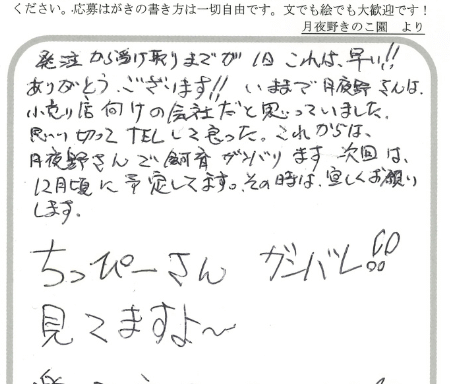 ください。応募はがきの書き方は一切自由です。文でも絵でも大歓迎です!
月夜野きのこ園 より
発注から受け取りまでが 1日 これは、早い!!
ありがとうございます!! いままで月夜野さんは、
小売り店向けの会社だと思っていました。
思い切ってTELして良かった。これからは、
月夜野さんで飼育ガンバリます 次回は、
12月頃に予定してます。その時は、宜しくお願い
します。
ちっぴーさん ガンバレ!!
見てますよ〜